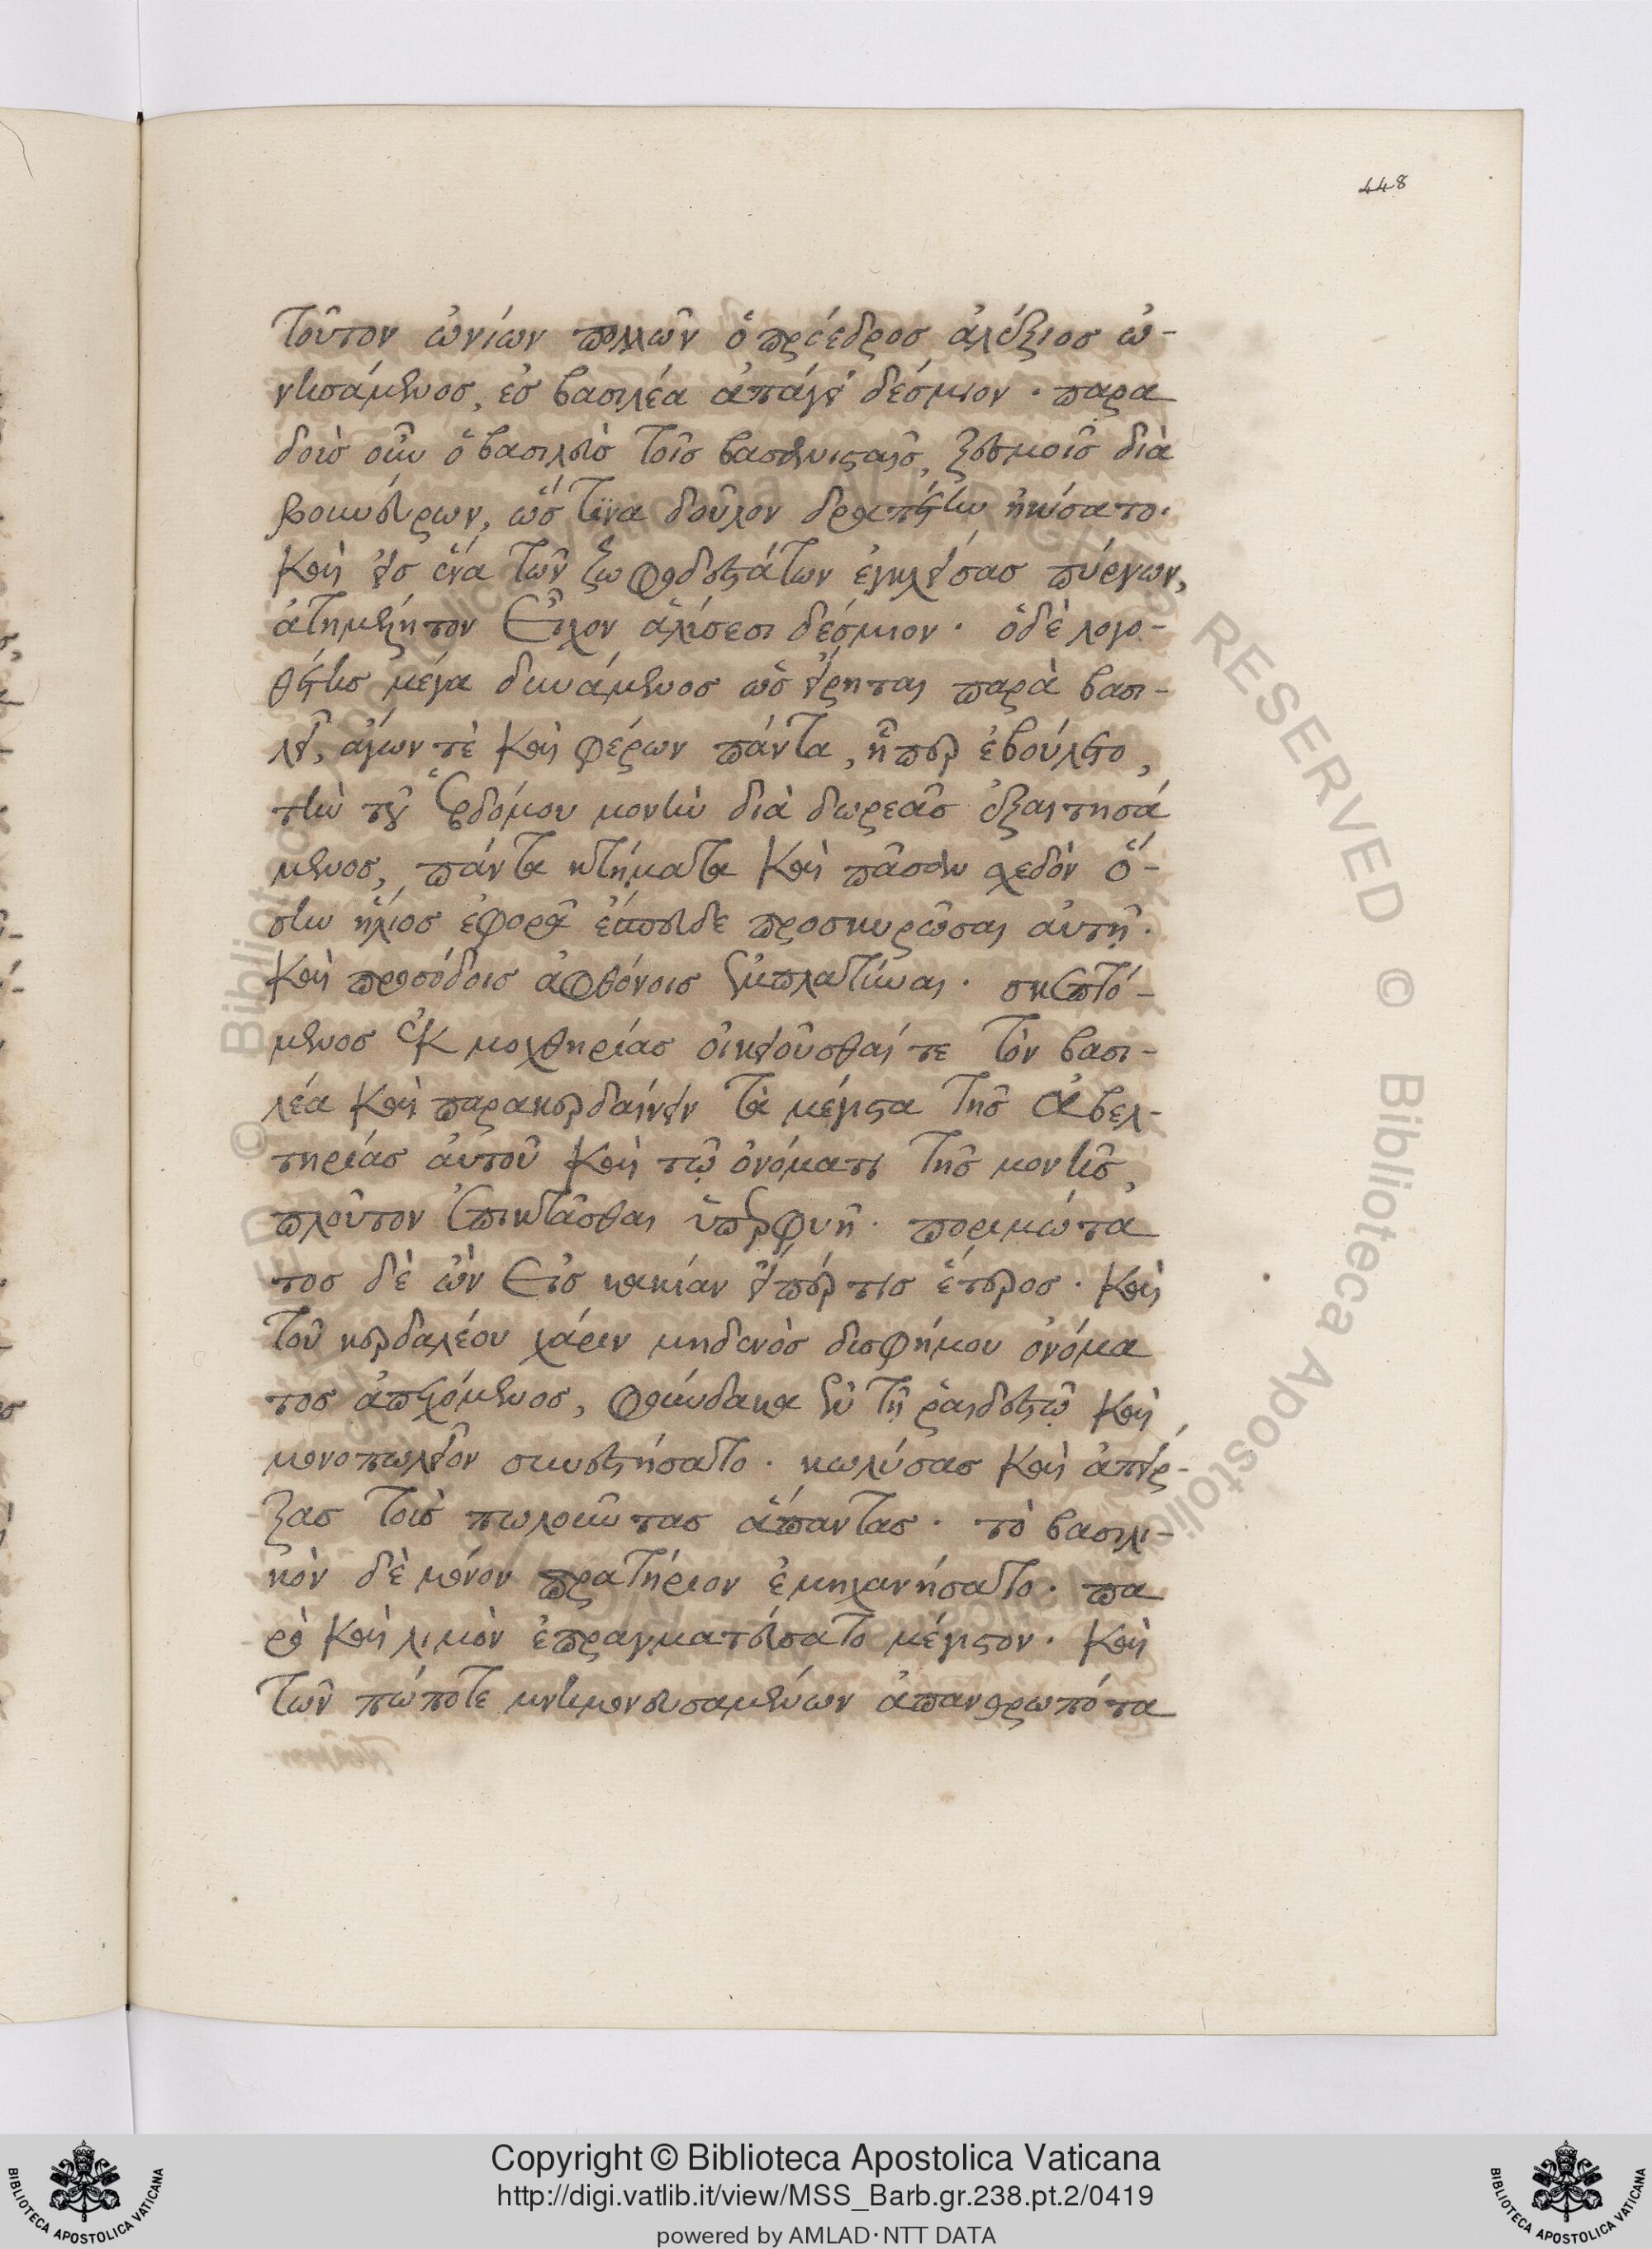 448
τοῦτον ὠνίων πολλῶν ὁ πρόεδρος ἀλέξιος ὠ-
νησάμενος, ἐς βασιλέα ἀπάγει δέσμιον · παρα
δοὺς οὖν ὁ βασιλεὺς τοῖς βασανισταῖς, ξεσμοῖς διὰ
βουνεύρων, ὥς τινα δοῦλον δραπέτην ἠκίσατο ·
καὶ εἰς ἕνα τῶν ζωφοδεστάτων ἐγκλείσας πύργων,
ἀτημέλητον εἶχον ἁλύσεσι δέσμιον · ὁ δὲ λογο-
θέτης μέγα δυνάμενος ὡς εἴρηται παρὰ βασι-
λεῖ, ἄγων τὲ καὶ φέρων πάντα, ᾗπερ ἐβούλετο,
τὴν τοῦ ἑβδόμου μονὴν διὰ δωρεᾶς ἐξαιτησά
μενος, πάντα κτήματα καὶ πᾶσαν σχεδὸν ὅ-
σην ἥλιος ἐφορᾶ ἔσπευδε προσκυρῶσαι αὐτῇ ·
καὶ προσόδοις ἀφθόνοις ἐμπλατύναι · σκεπτό-
μενος ἐκ μοχθηρίας οἰκειοῦσθαί τε τὸν βασι-
λέα καὶ παρακερδαίνειν τὰ μέγιστα τῆς ἀβελ-
τηρίας αὐτοῦ καὶ τῷ ὀνόματι τῆς μονῆς,
πλοῦτον ἐπικτᾶσθαι ὑπερφυῆ · ποριμώτα
τος δὲ ὢν εἰς κακίαν εἴπέρ τις ἕτερος · καὶ
τοῦ κερδαλέου χάριν μηδενὸς δυσφήμου ὀνόμα
τος ἀπεχόμενος, φούνδακα ἐν τῇ ῥαιδεστῷ καὶ
μονοπωλεῖον συνεστήσατο · κωλύσας καὶ ἀπείρ-
ξας τοὺς πωλοῦντας ἅπαντας · τὸ βασιλι-
κὸν δὲ μόνον πρατήριον ἐμηχανήσατο · πα
ρὸ καὶ λιμὸν ἐπραγματεύσατο μέγιστον · καὶ
τῶν πώποτε μνημονευσαμένων ἀπανθρωπότα
Copyright © Biblioteca Apostolica Vaticana
http://digi.vatlib.it/view/MSS_Barb.gr.238.pt.2/0419
powered by AMLAD·NTT DATA
BIBLIOTECA APOSTOLICA VATICANA
BIBLIOTECA APOSTOLICA VATICANA